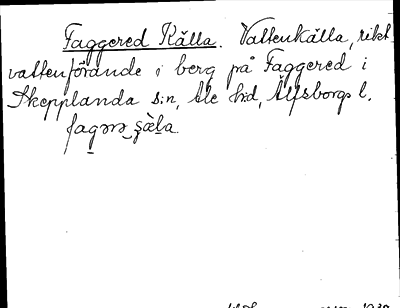 Faggered Källa. Vattenkälla, rikt
vattenförande i berg på Faggered i
Skepplanda s:n, Ale hd, Älfsborgs l.